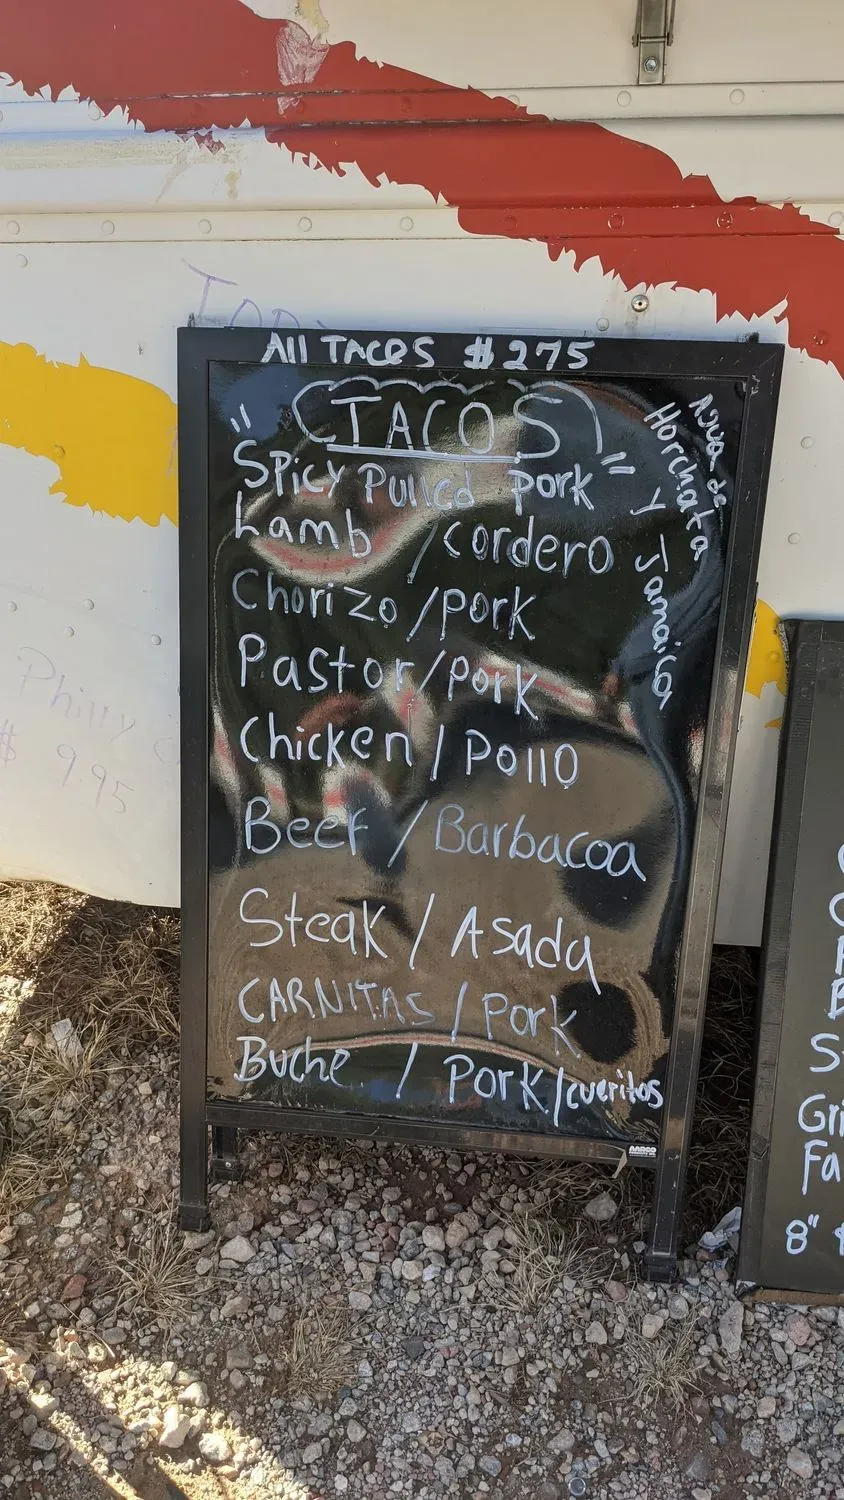 All TACOS $275
"TACOS"
Spicy Pulled pork
Lamb / cordero
Chorizo / pork
Pastor / pork
Chicken / Pollo
Beef / Barbacoa
Steak / Asada
CARNITAS / Pork
Buche / Pork / cueritos
Agua de
Horchata
y Jamaica
AARCO
Philly
$ 9.95
8"